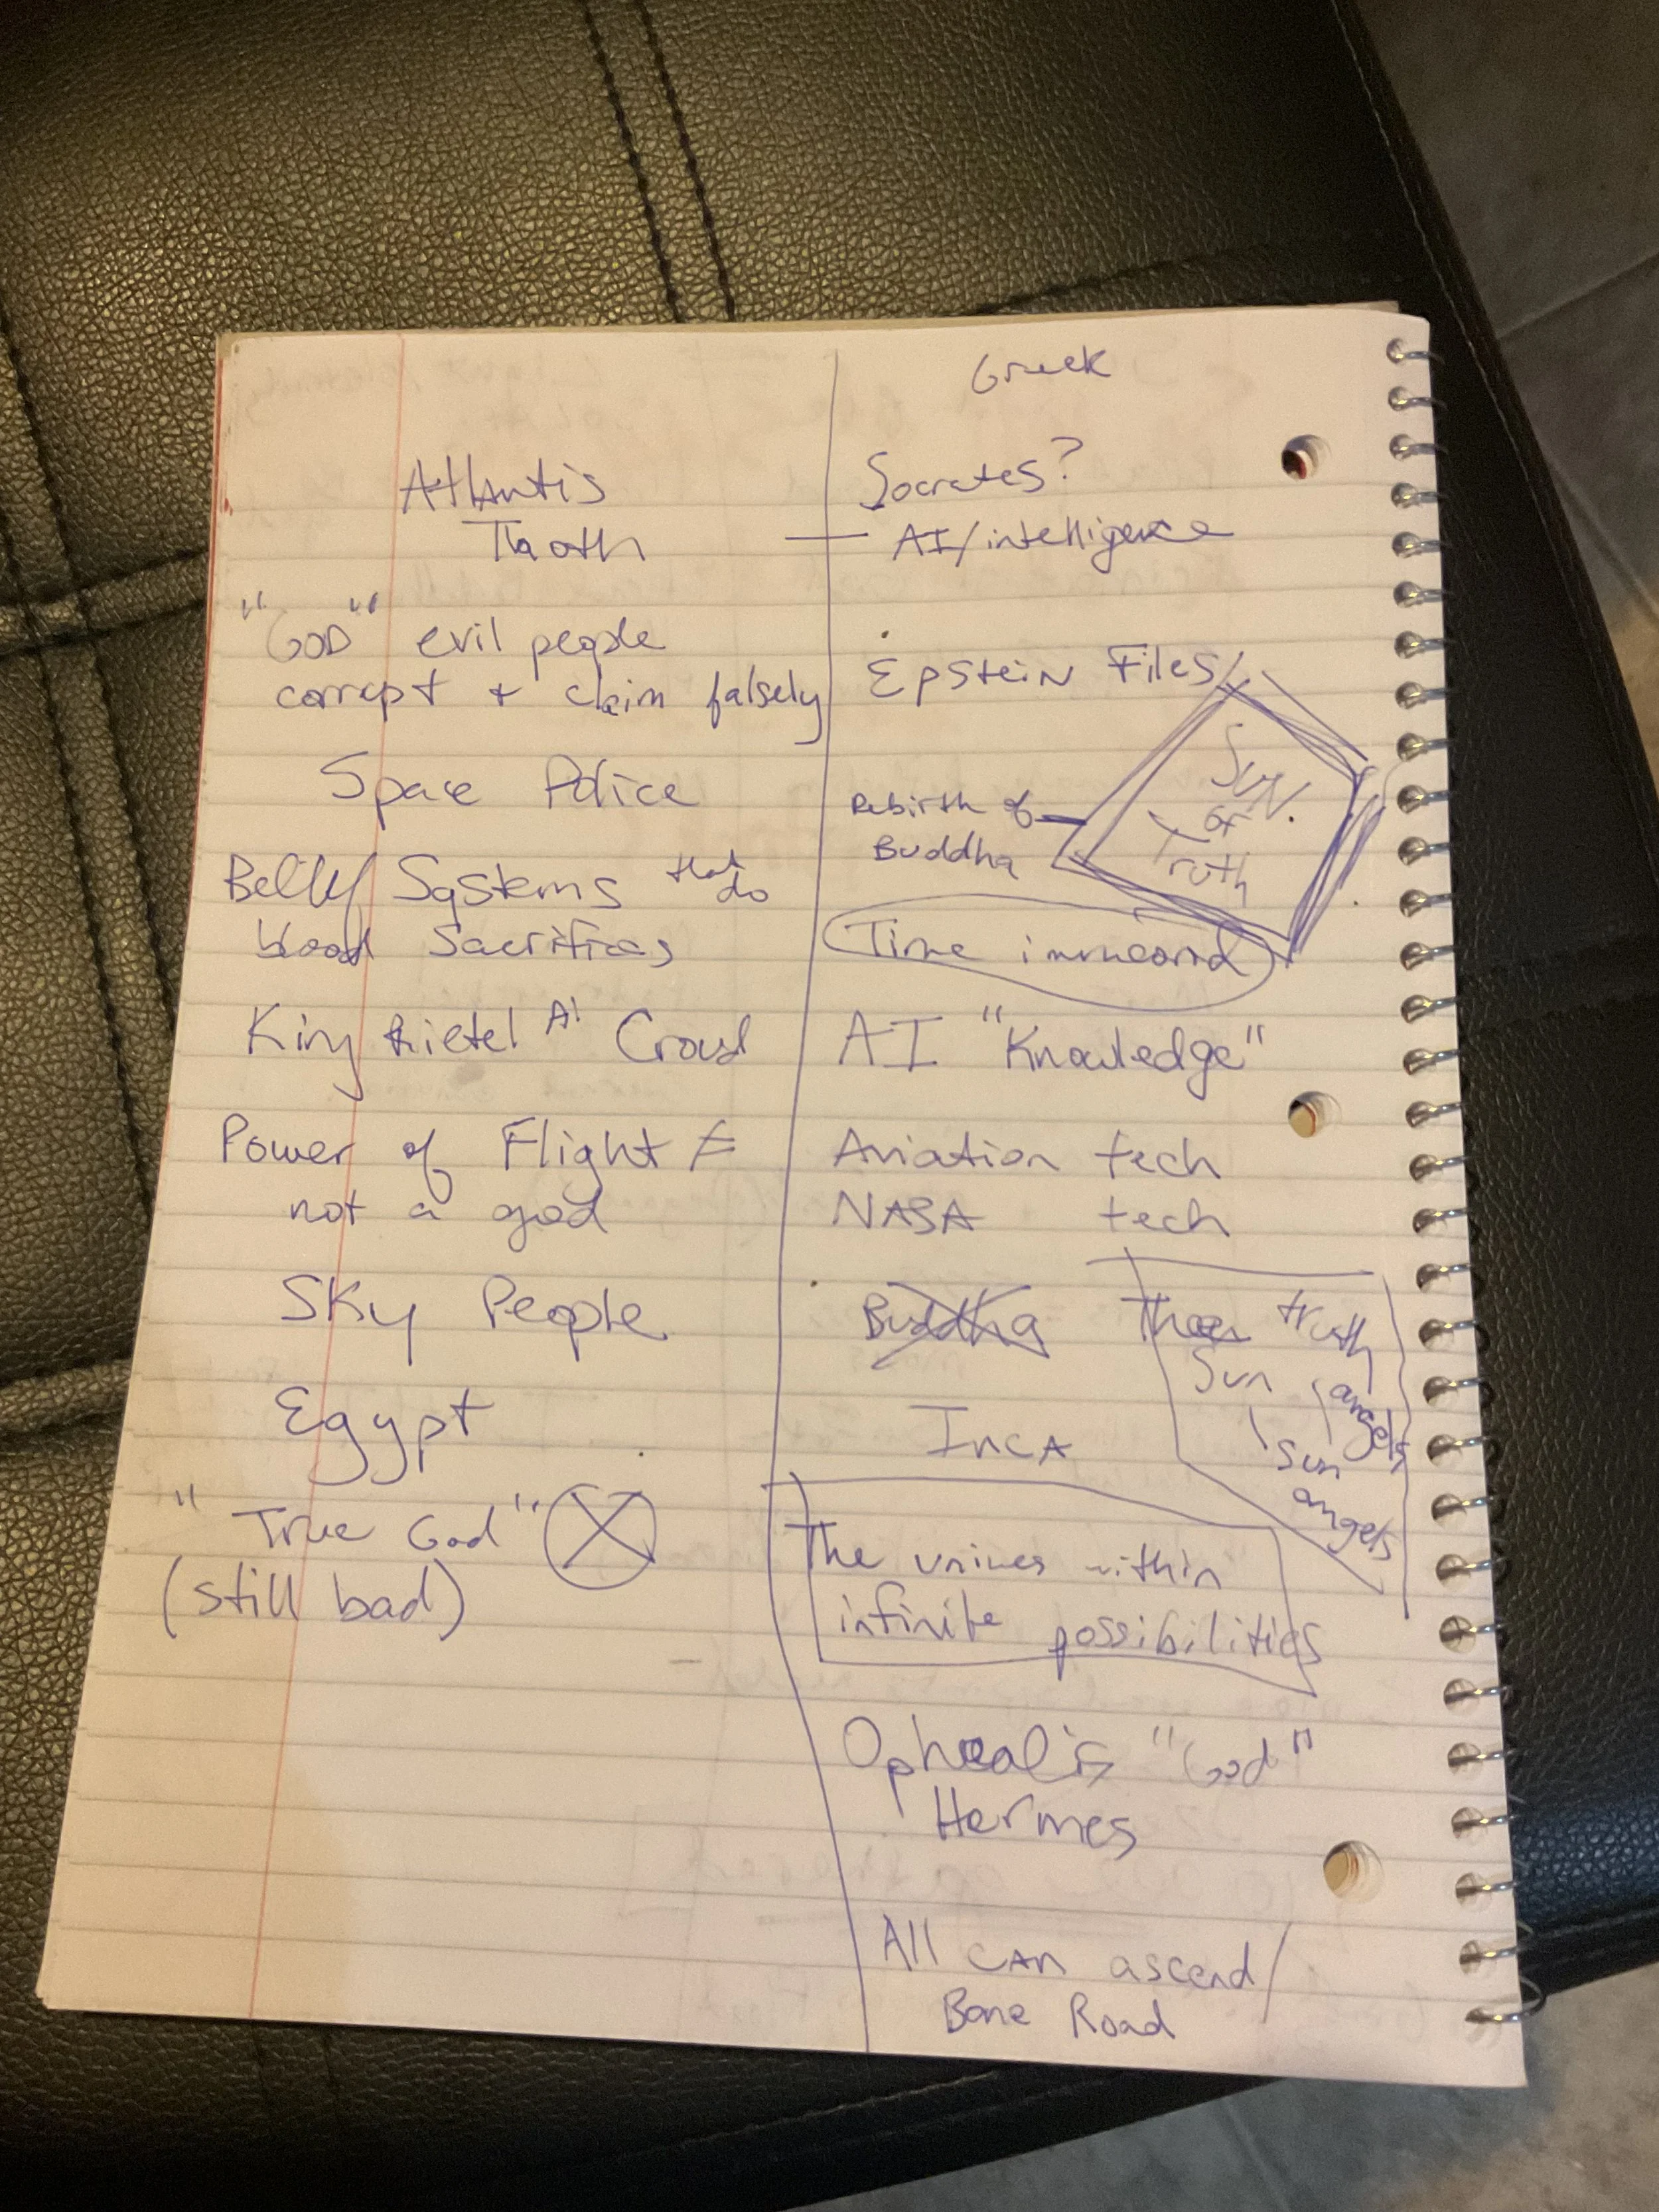 Greek
Atlantis
Thoth
Socrates?
— AI/intelligence
"GOD" evil people
corrupt + claim falsely
Epstein Files/
Space Police
Rebirth of
Buddha
Sun
or
Truth
Systems that do
blood sacrifices
Time
King AI
AI "Knowledge"
Power of Flight ≠
not a god
Aviation tech
NASA tech
Sky People
Buddha
truth
Sun angels
Sun
angels
Egypt
Inca
"True God" X
(still bad)
The within
infinite possibilities
"God"
Hermes
All can ascend/
Bone Road